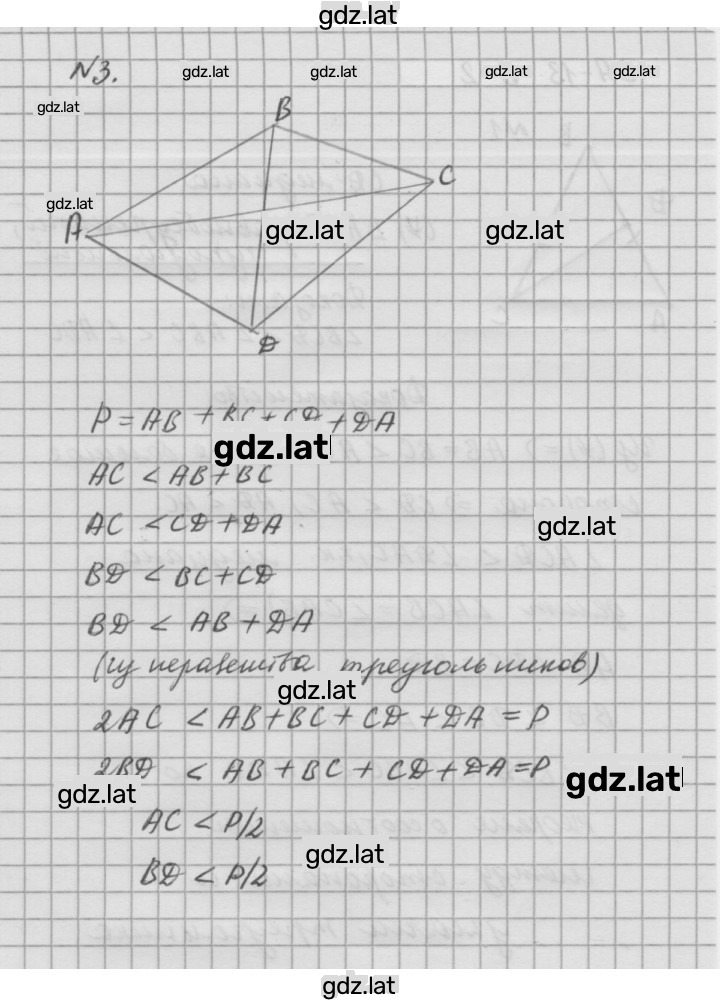 gdz.lat
N3.
gdz.lat gdz.lat gdz.lat gdz.lat
gdz.lat
B
C
gdz.lat
A
gdz.lat gdz.lat
D
P = AB + BC + CD + DA
gdz.lat
AC < AB + BC
AC < CD + DA
gdz.lat
BD < BC + CD
BD < AB + DA
(из неравенства треугольников)
gdz.lat
2AC < AB + BC + CD + DA = P
2BD < AB + BC + CD + DA = P
gdz.lat
gdz.lat
AC < P/2
gdz.lat
BD < P/2
gdz.lat